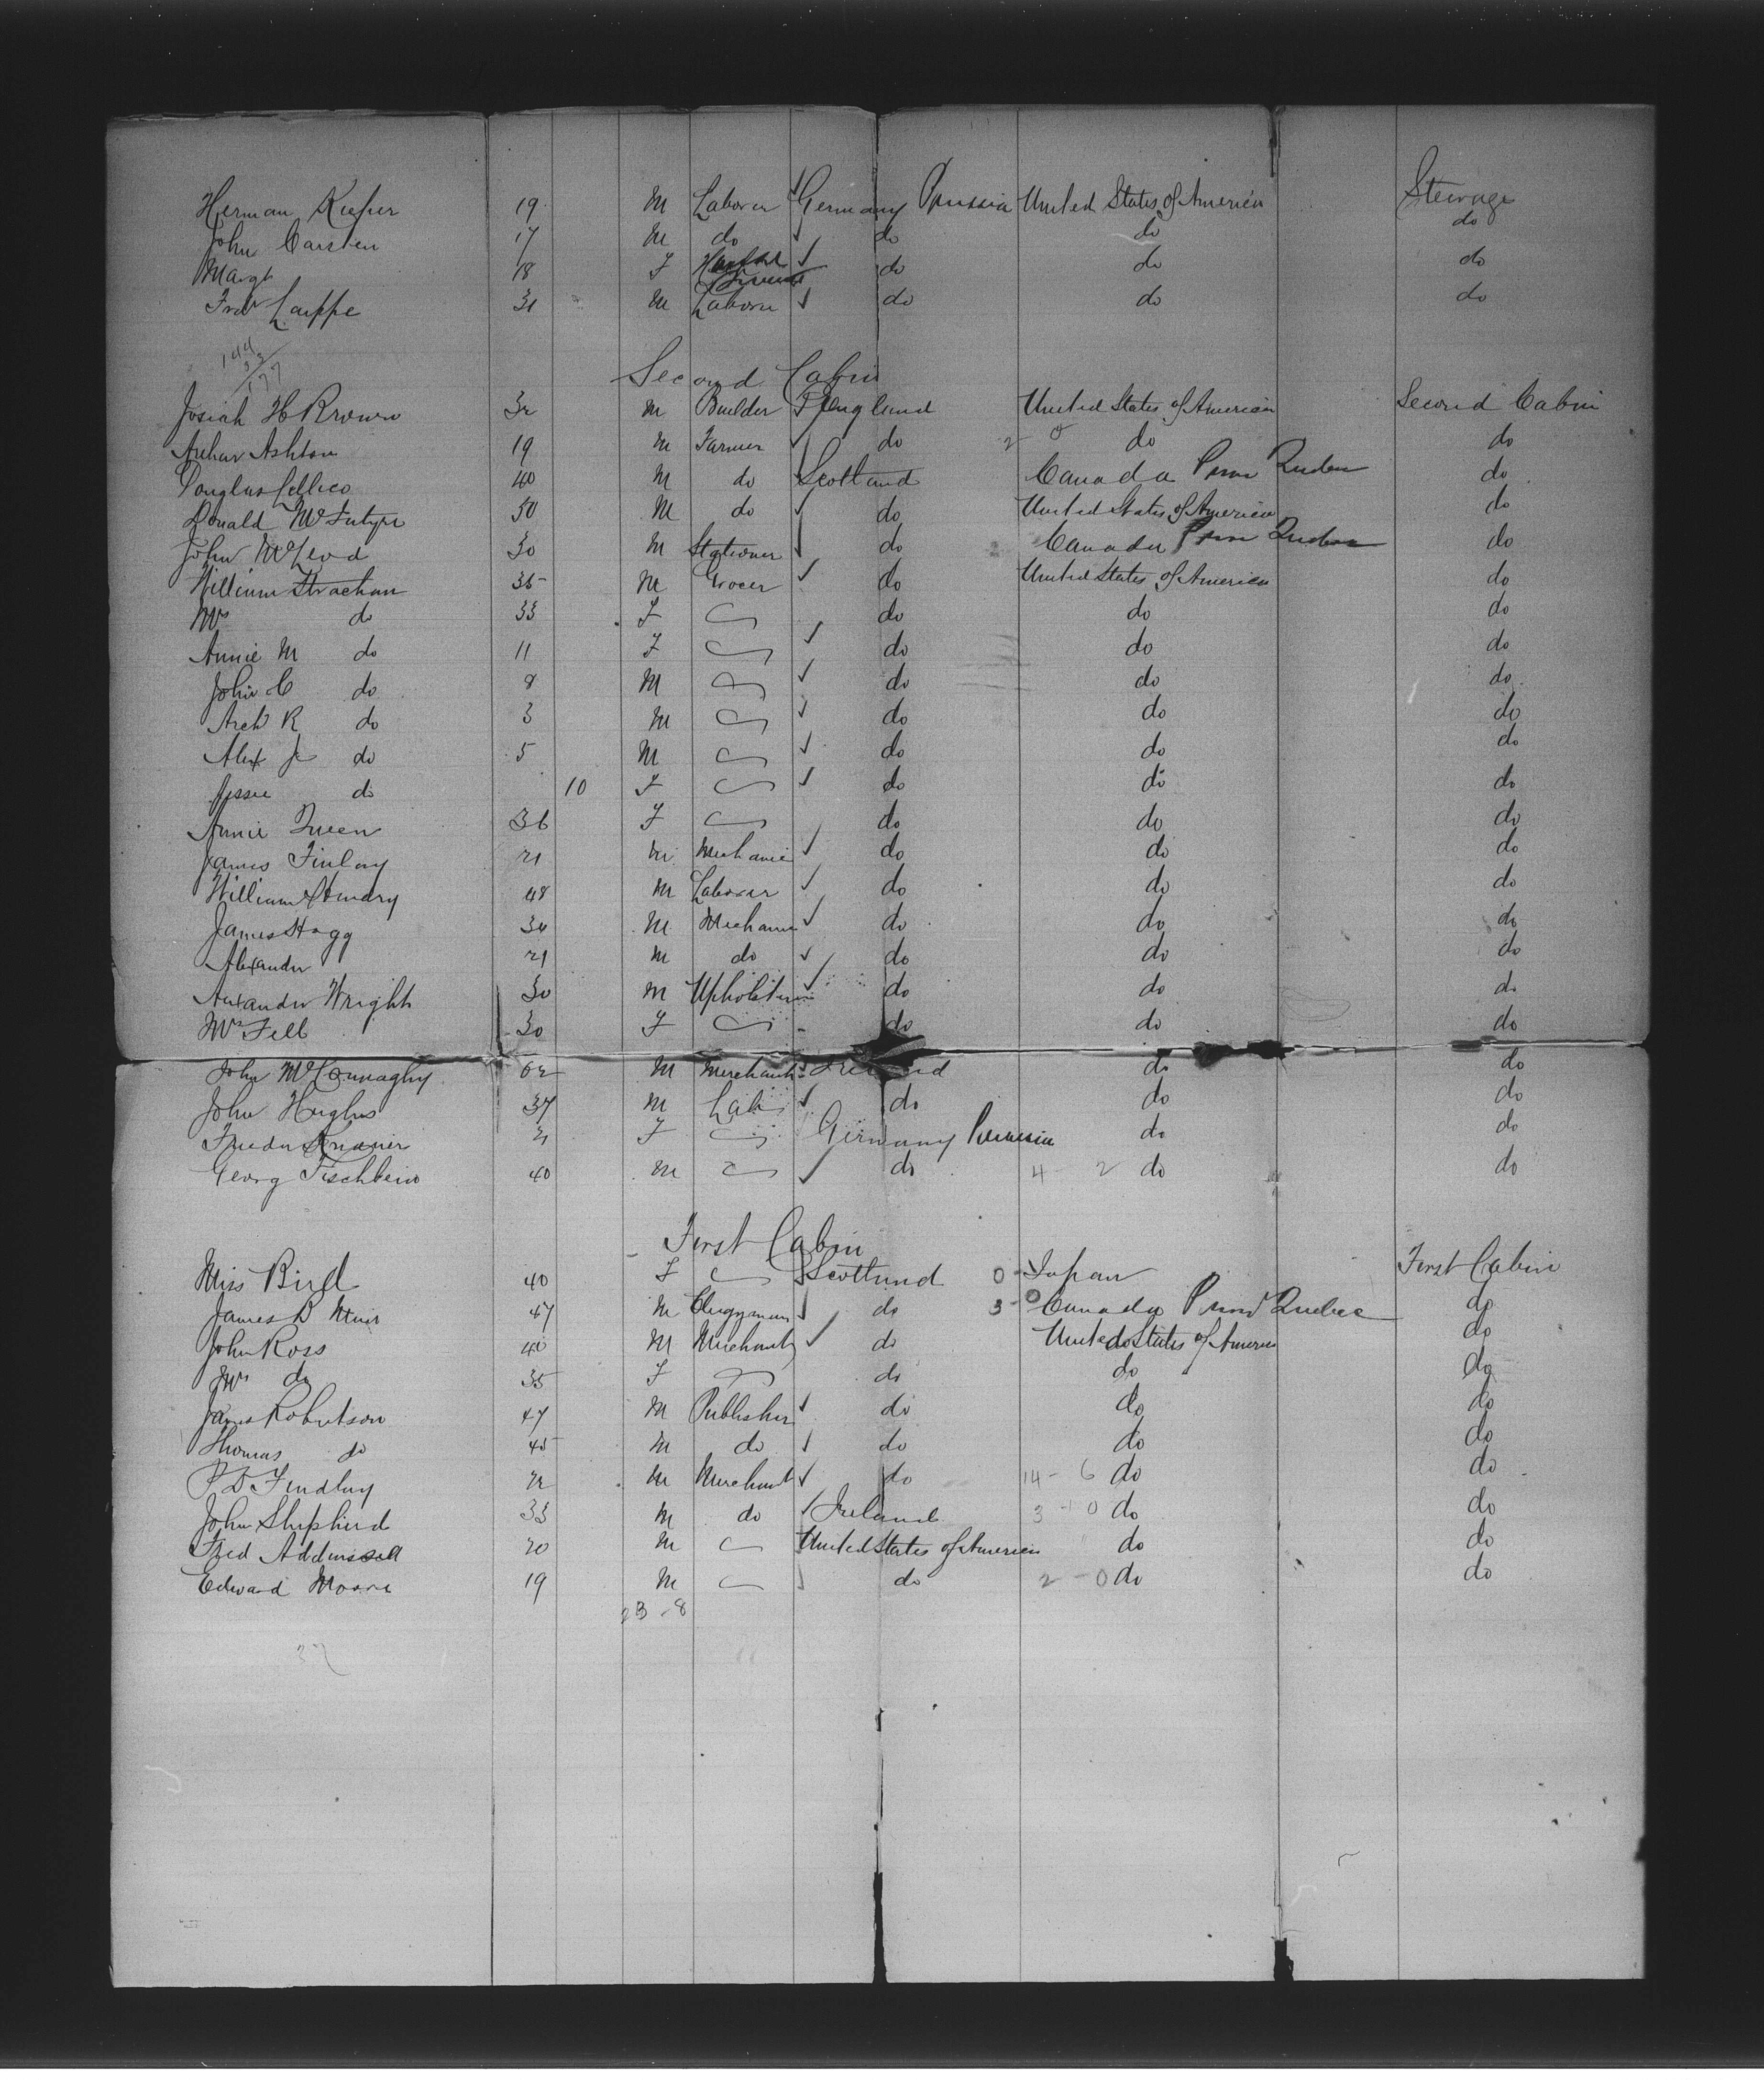 Herman Kiefer 19 M Laborer Germany Prussia United States of America Steerage
John Carsten 17 M do do do do
Margt 18 F do do do
Fred Lappe 31 M Laborer do do do
144
33
177
Second Cabin
Josiah H Brown 32 M Builder England United States of American Second Cabin
Arthur Ashton 19 M Farmer do 2 0 do do
Douglas 40 M do Scotland Canada Prov Quebec do
Donald McIntyre 50 M do do United States of America do
John McLeod 30 M Stationer do Canada Prov Quebec do
William Strachan 35 M Grocer do United States of America do
Mrs do 33 F do do do
Annie M do 11 F do do do
John C do 8 M do do do
Arch R do 3 M do do do
Alex Jr do 5 M do do do
Jessie do 10 F do do do
Annie Queen 36 F do do do
James Finlay 21 M Mechanic do do do
William Hendry 48 M Laborer do do do
James Hogg 34 M Mechanic do do do
Alexander 21 M do do do do
Alexander Wright 30 M Upholsterer do do do
Mrs Fell 30 F do do do
John McConnaghy 62 M Merchant Ireland do do
John Hughes 37 M Lab do do do
F Germany Prussia do do
Georg Fischbein 40 M do 4 - 2 do do
First Cabin
Miss Bird 40 F Scotland 0 - Japan First Cabin
James B Muir 47 M Clergyman do 3 - 0 Canada Prov Quebec do
John Ross 40 M Merchant do United States of America do
Mrs do 35 F do do do
James Robertson 47 M Publisher do do do
Thomas do 45 M do do do do
P D Findlay 22 M Merchant do 14 - 6 do do
John Shepherd 33 M do Ireland 3 - 0 do do
Fred Addinsell 20 M United States of America do do
Edward Moore 19 M do 2 - 0 do do
23 - 8
37